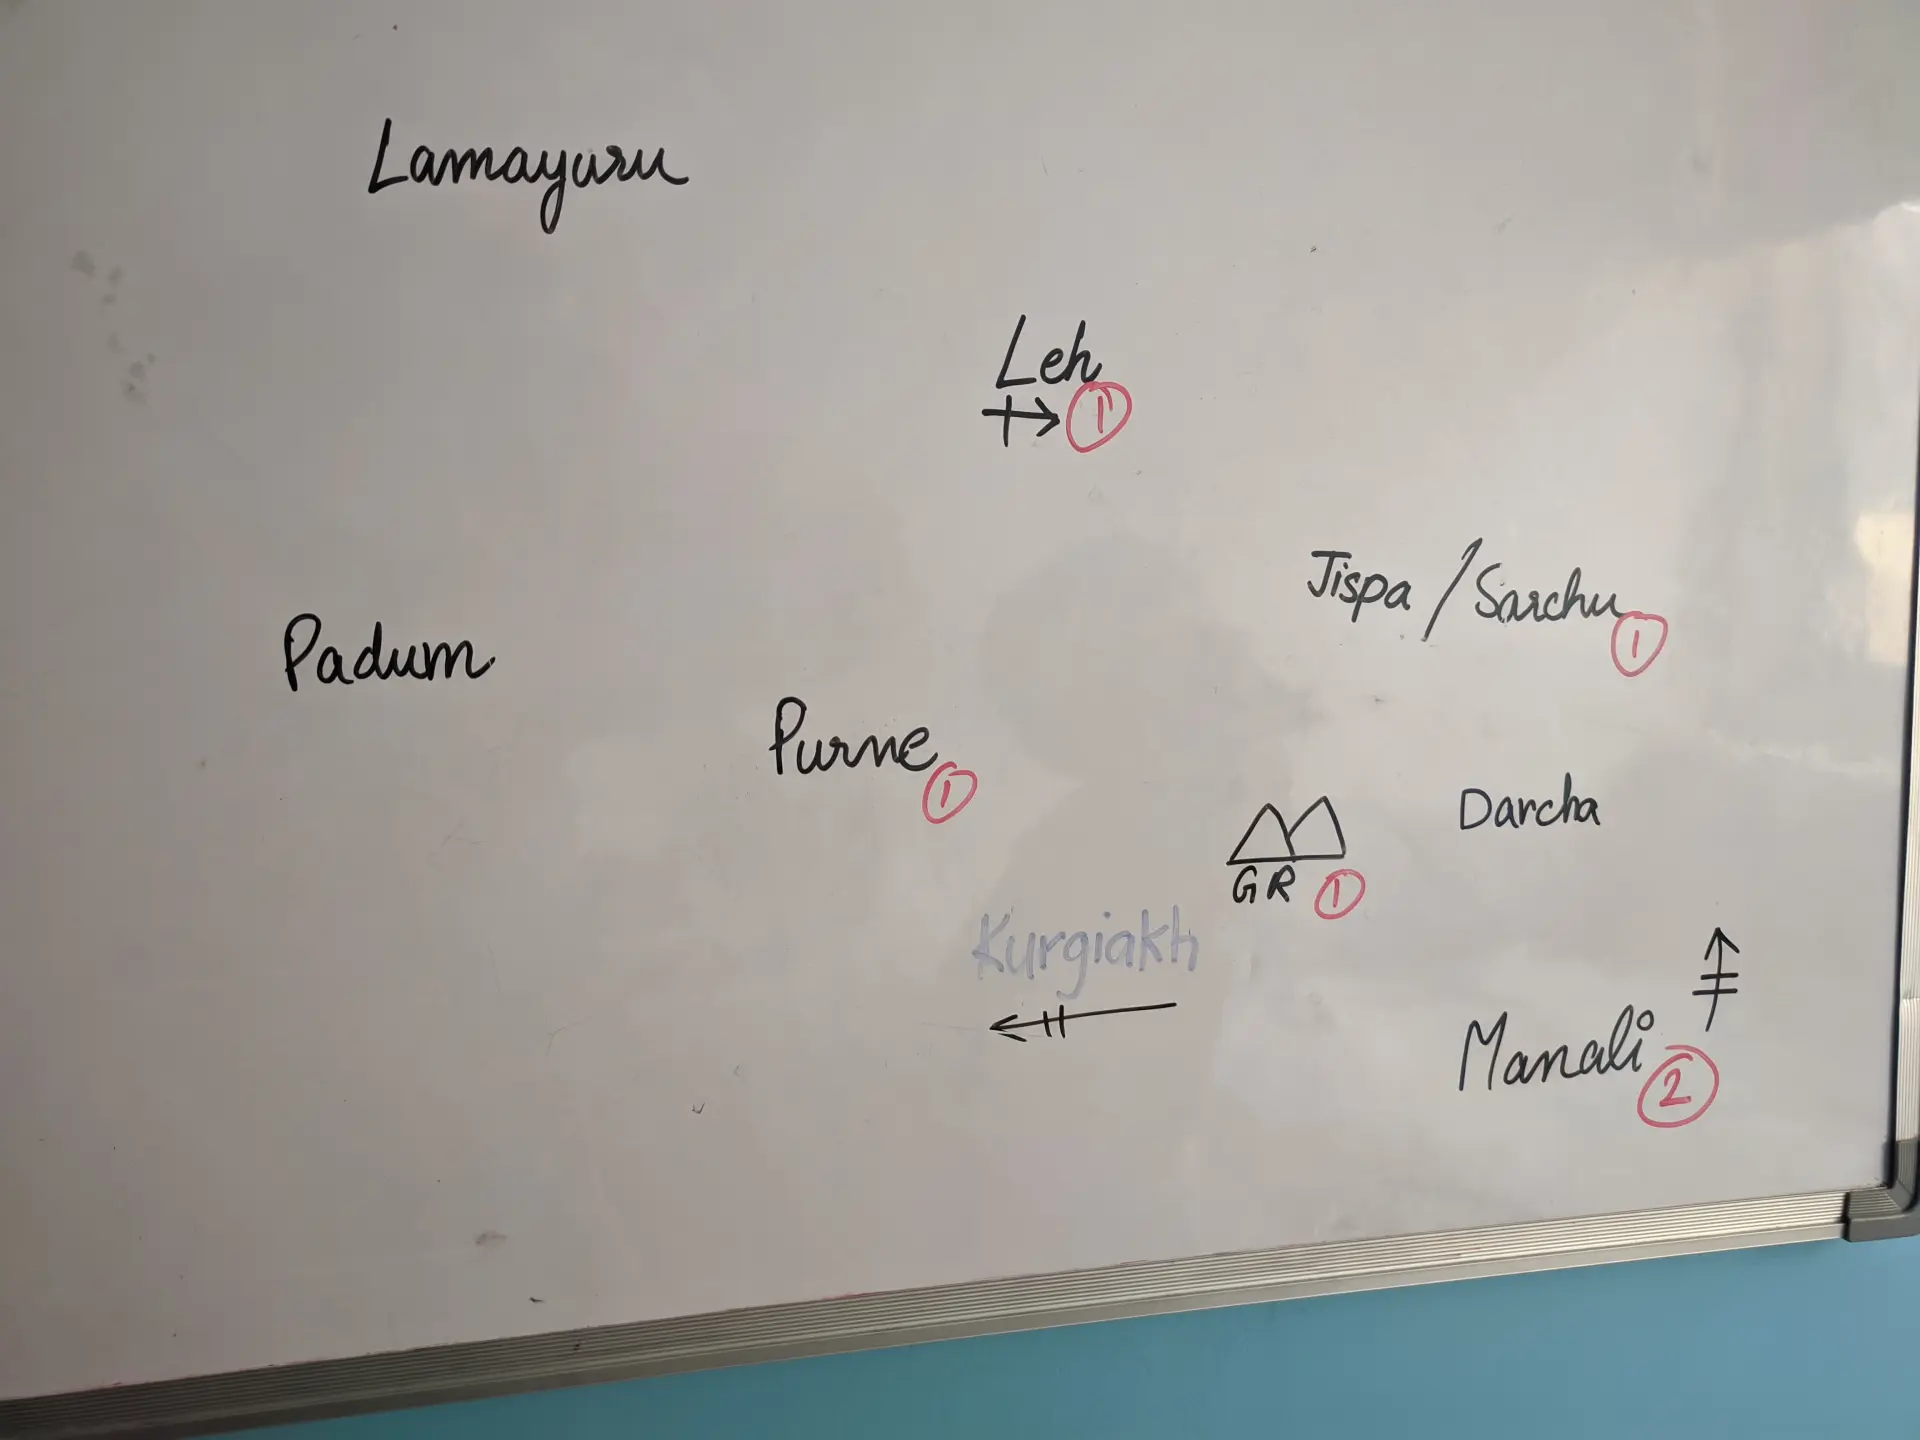 Lamayuru
Leh
1
Jispa / Sarchu
1
Padum
Purne
1
Darcha
GR 1
Kurgiakh
Manali
2